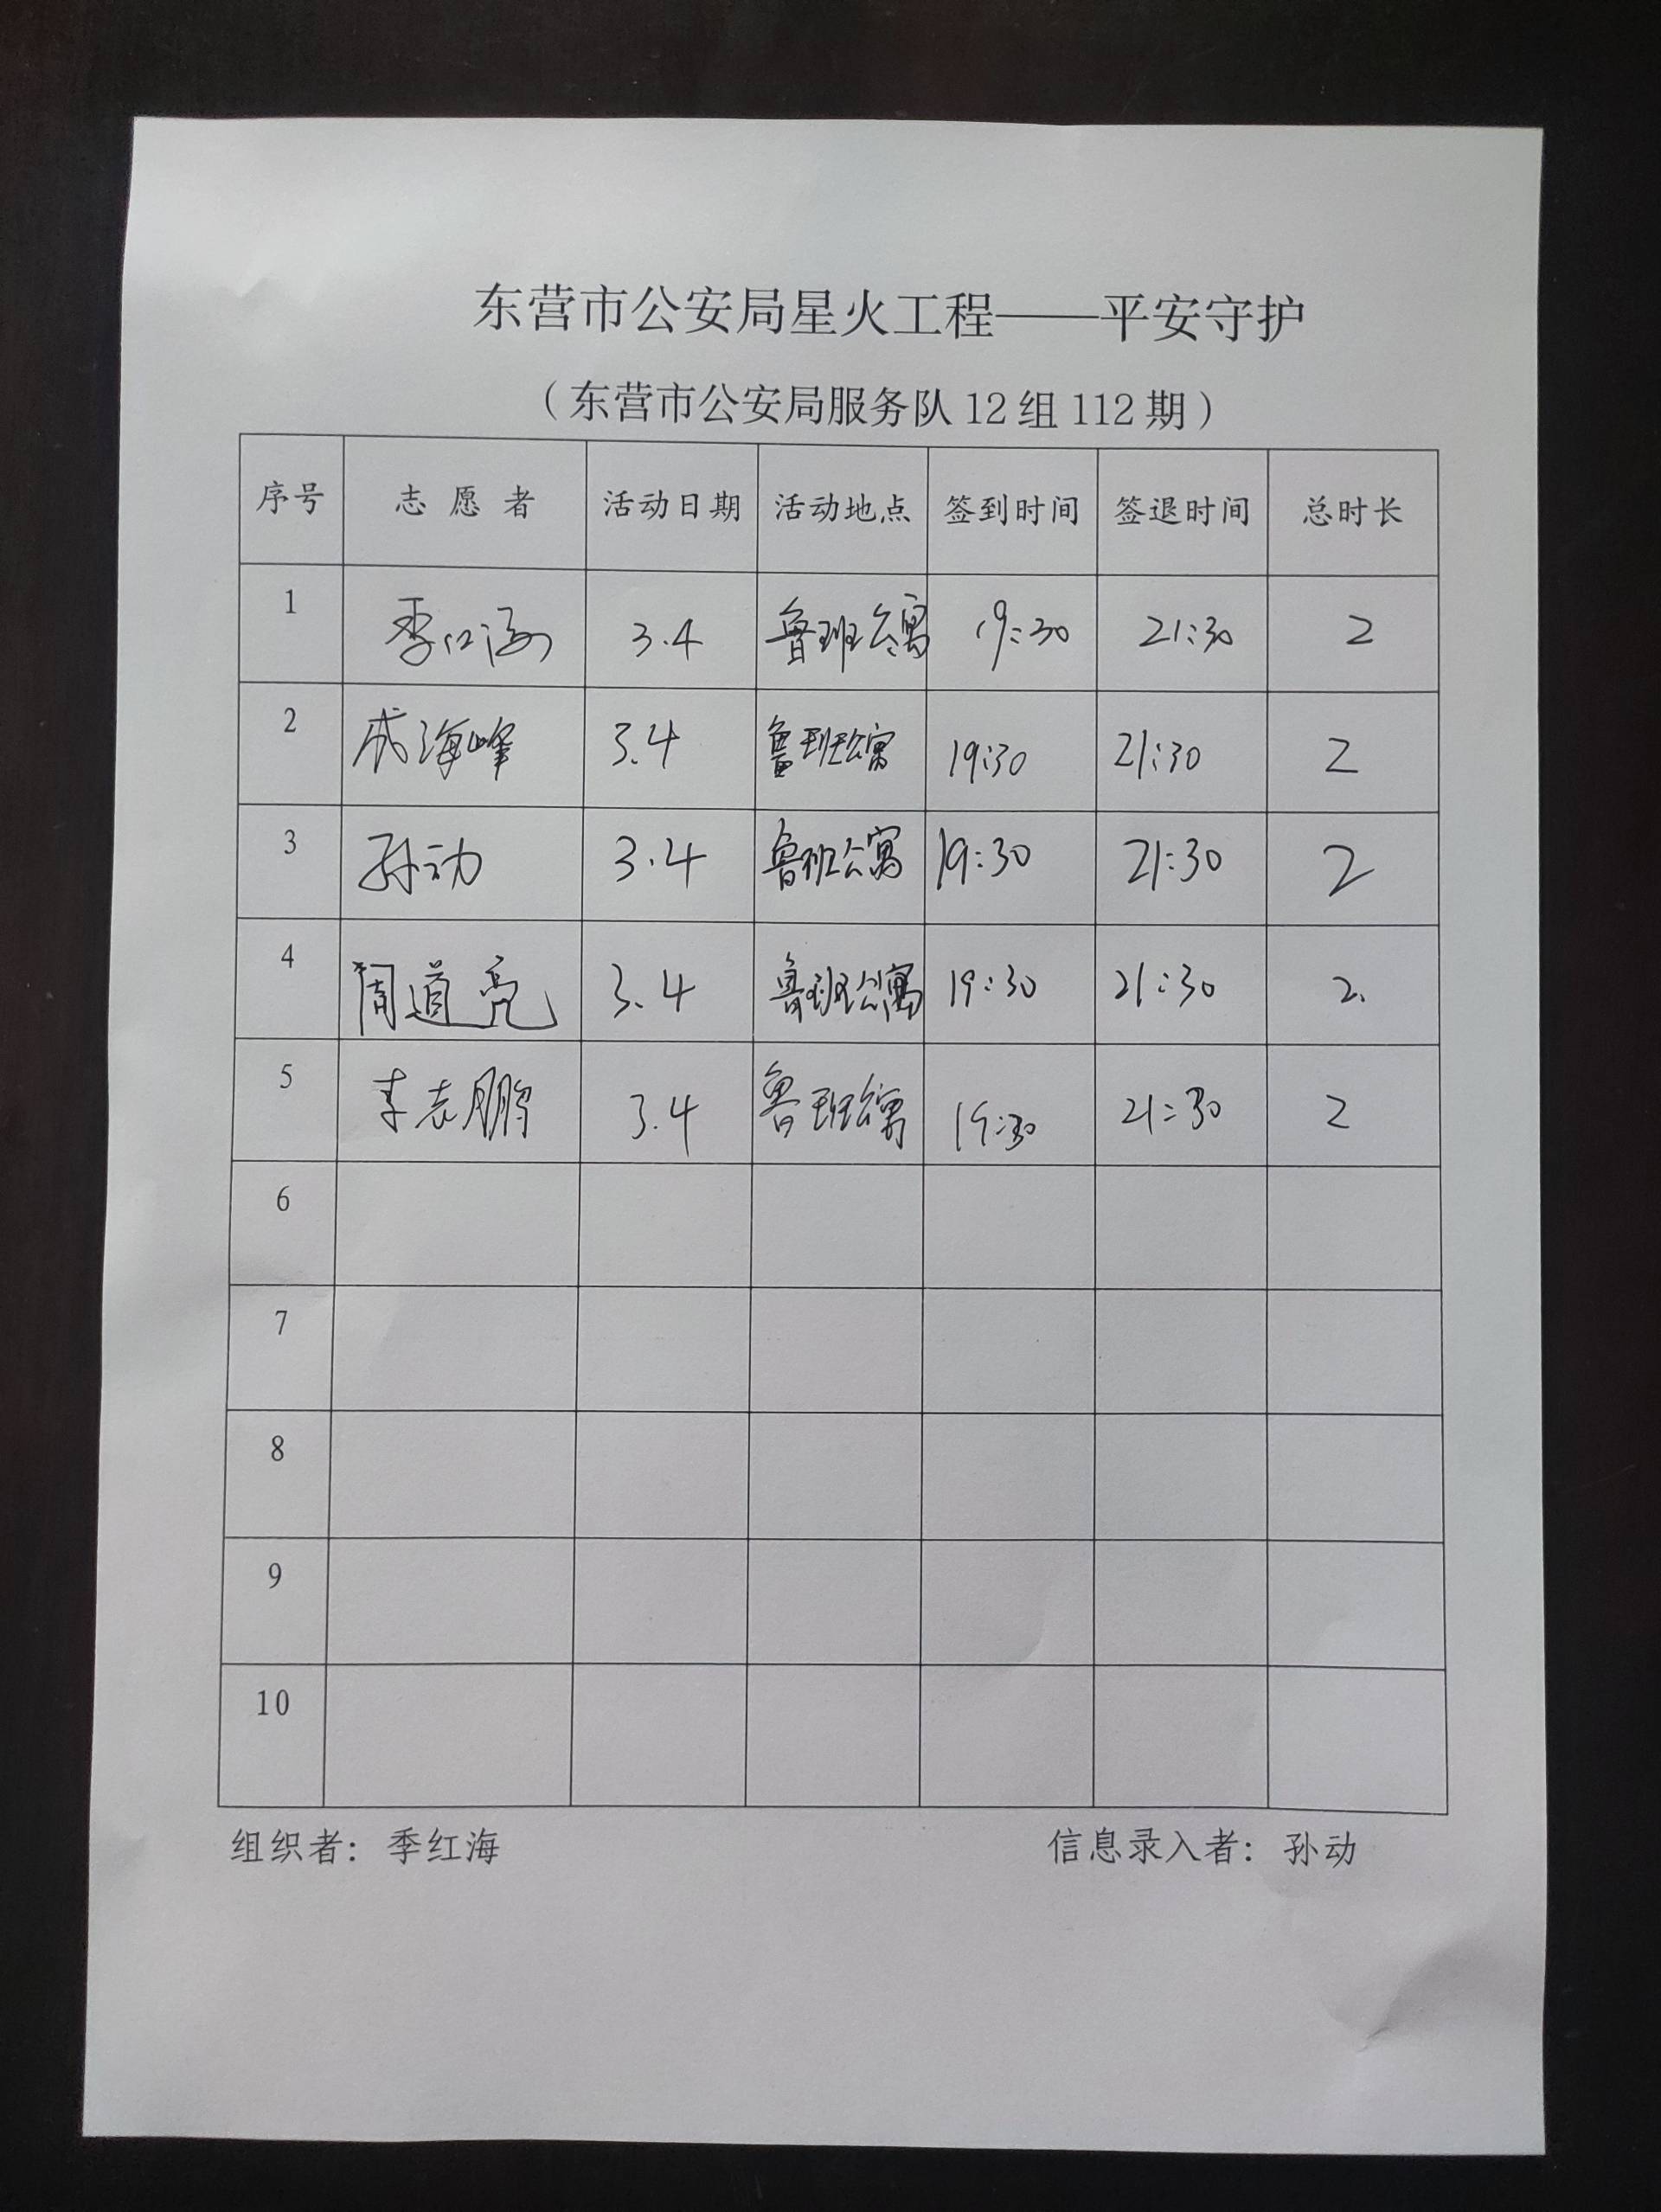 东营市公安局星火工程——平安守护
（东营市公安局服务队12组112期）
序号 志愿者 活动日期 活动地点 签到时间 签退时间 总时长
1 季红海 3.4 鲁班公寓 19:30 21:30 2
2 成海峰 3.4 鲁班公寓 19:30 21:30 2
3 孙动 3.4 鲁班公寓 19:30 21:30 2
4 周道亮 3.4 鲁班公寓 19:30 21:30 2.
5 李志鹏 3.4 鲁班公寓 19:30 21:30 2
6
7
8
9
10
组织者：季红海 信息录入者：孙动